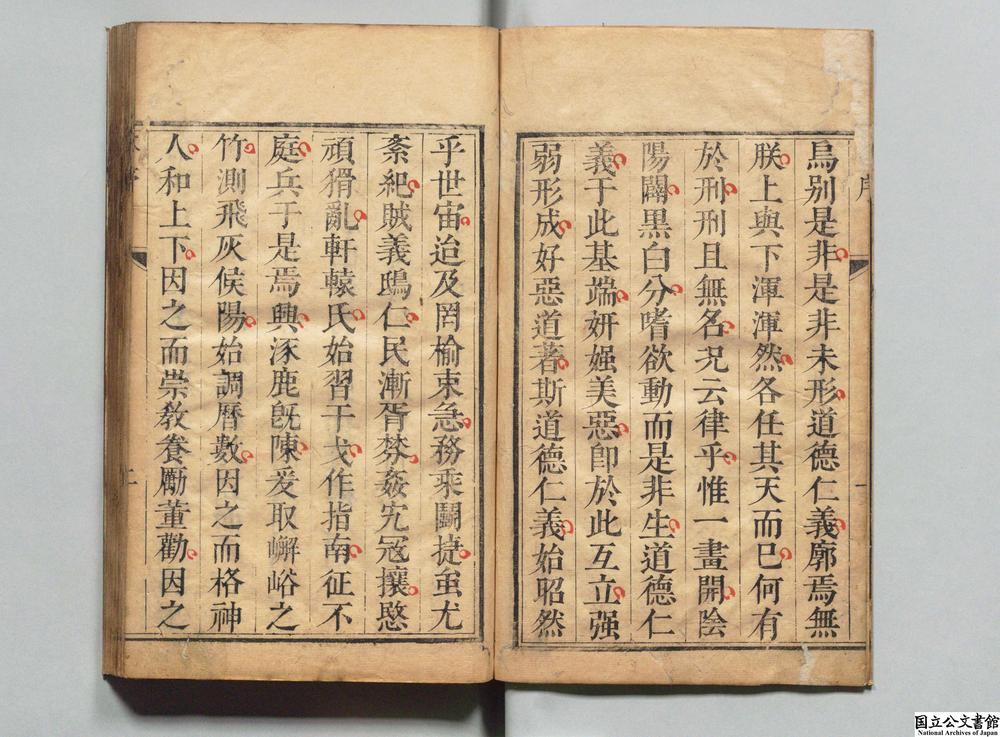 序
烏別是非是非未形道德仁義廓焉無
朕上與下渾渾然各任其天而已何有
於刑刑且無名况云律乎惟一畫開陰
陽闢黑白分嗜欲動而是非生道德仁
義于此基端妍媸美惡卽於此互立强
弱形成好惡道著斯道德仁義始昭然
一
乎世宙迨及罔榆束急務乘鬭捷蚩尤
紊紀賊義鴟仁民漸胥棼姦宄寇攘愍
頑猾亂軒轅氏始習干戈作指南征不
庭兵于是焉興涿鹿旣陳爰取嶰峪之
竹測飛灰候陽始調曆數因之而格神
人和上下因之而崇敎養勵董勸因之
二
国立公文書館
National Archives of Japan